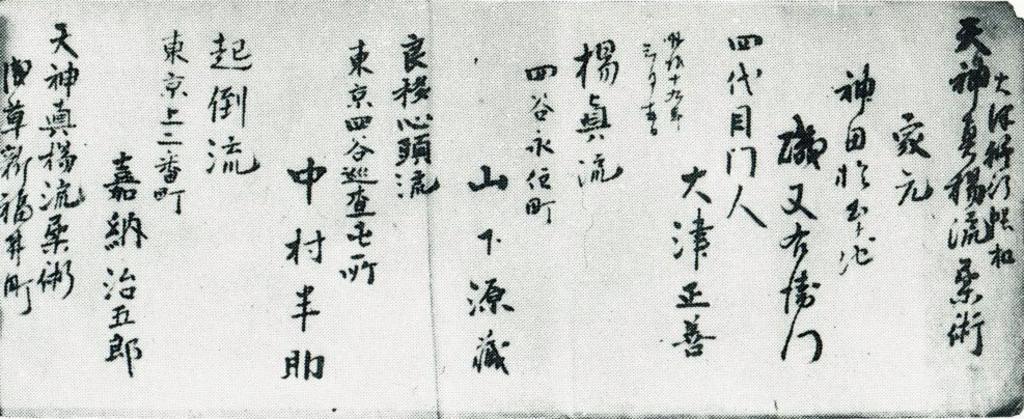 天神真楊流柔術
家元
神田於玉ヶ池
磯又右衛門
四代目門人
大津正善
明治十九年
楊真流
四谷永住町
山下源蔵
良移心頭流
東京四谷巡査屯所
中村半助
起倒流
東京上二番町
嘉納治五郎
天神真楊流柔術
浅草新福井町